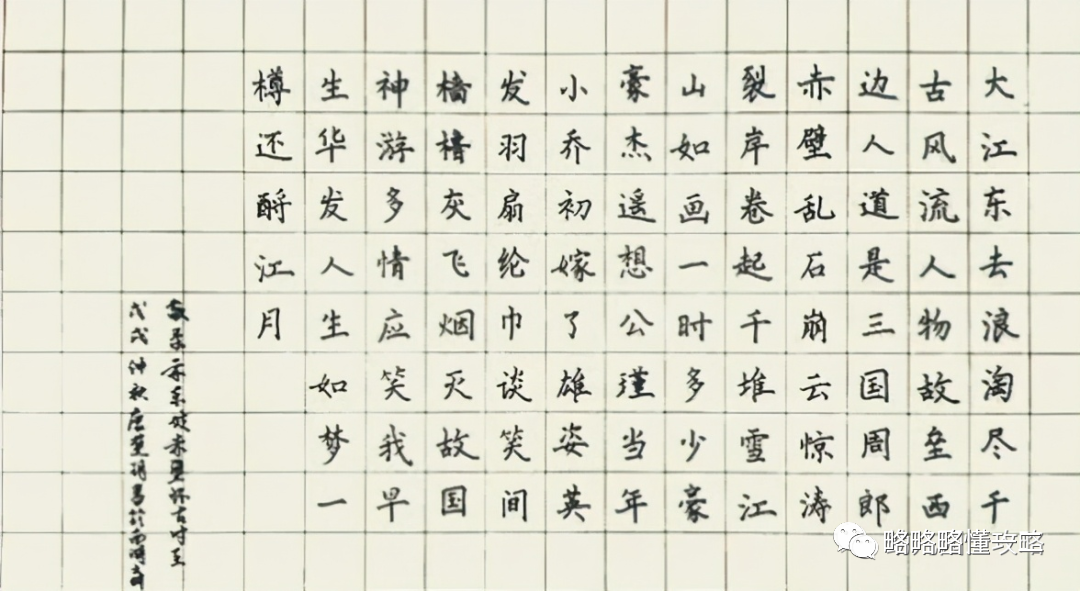 大江东去浪淘尽千
古风流人物故垒西
边人道是三国周郎
赤壁乱石崩云惊涛
裂岸卷起千堆雪江
山如画一时多少豪
豪杰遥想公瑾当年
小乔初嫁了雄姿英
发羽扇纶巾谈笑间
樯橹灰飞烟灭故国
神游多情应笑我早
生华发人生如梦一
樽还酹江月
戊戌仲秋
略略略懂攻略